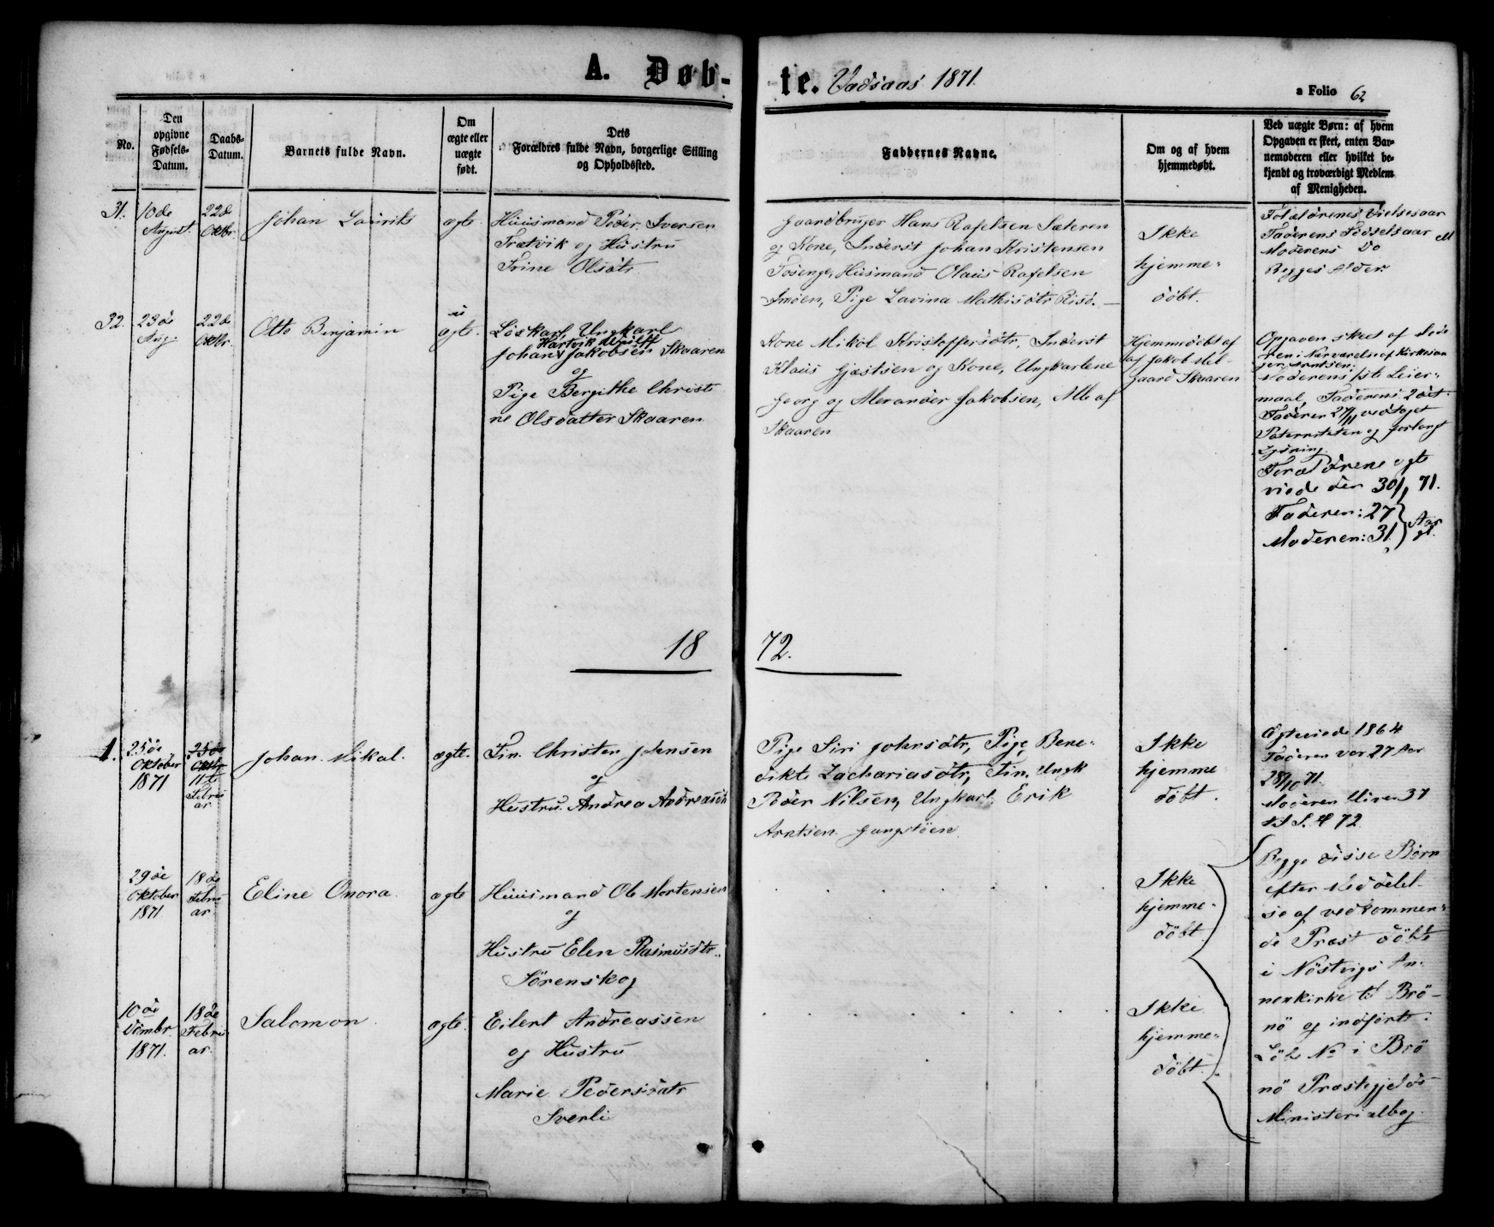 A. Døb-te. Vadsaas 1871.
a Folio 62
No.
Den opgivne Fødsels-Datum.
Daabs-Datum.
Barnets fulde Navn.
Om ægte eller uægte født.
Dets Forældres fulde Navn, borgerlige Stilling og Opholdssted.
Faddernes Navne.
Om og af hvem hjemmedøbt.
Ved uægte Børn: af hvem
Opgaven er skeet, enten Bar-
nemoderen eller hvilket be-
kjendt og troværdigt Medlem
af Menigheden.
31.
10de
August.
22de
Oktbr.
Johan Laurits
ægte
Huusmand Peder Iversen
Trætvik og Hustru
Trine Olsdtr
Gaardbruger Hans Rafelsen Sæteren
og Kone, Inderst Johan Kristensen
Huusmand Olaus Rafelsen
Pige Lavina Mathisdtr
Ikke
hjemme-
døbt.
Forældrenes Vielsesaar
Faderens Fødselsaar
Moderens Do
Begges Alder.
32.
23de
Aug.
22de
Oktbr.
Otto Benjamin
u
ægte.
Løskarl Ungkarl
Hartvik Meniff
Johan Jakobsen Skaaren
og
Pige Bergithe Christi
ne Olsdatter Skaaren
Kone Mikol Kristoffersdtr, Inderst
Klaus Gjæstsen og Kone, Ungkarlene
Georg og Alexander Jakobsen, Alle af
Skaaren
Hjemmedøbt af
af Jakob Stil-
gaard Skaaren
Opgaven skeet af Mode
ren i Nærværelse af Kirkesan
ger Arntsen:
Moderens 1ste Leier-
maal, Faderens 2det.
Faderen 27/11 vedtaget
Paterniteten og forlangt
Lysning
Forældrene ægte
viede den 30/ 71.
Faderen: 27
Moderen: 31 } Aar gl.
18 72.
1.
25de
Oktober
1871
25de
Oktbr
11te
Februar
Johan Mikal.
ægte.
Fin. Christen Jensen
og
Hustru Andrea Andreasdtr
Pige Siri Johnsdtr, Pige Bene-
dikte Zachariasdtr, Fin. Ungk
Peder Nilsen, Ungkarl. Erik
Arntsen
Ikke
hjemme
døbt
Ægteviede 1864
Faderen var 27 Aar
28/10 71.
Moderen bliver 37
72
29de
Oktober
1871
18de
Febru
ar.
Eline Onora.
ægte
Huusmand Ole Mortensen
og
Hustru Elen Rasmusdtr.
Sørenskog
Ikke
hjemme-
døbt.
Begge disse Børn
efter Meddelel-
se af vedkommen-
de Præst døbte
i Nøstvigs An-
nexkirke til Brø-
nø og indførte
Løb. No i Brø
nø Præstegjelds
Ministerialbog.
10de
Dcmbr.
1871.
18de
Febru
ar.
Salomon
ægte.
Eilert Andreassen
og Hustru
Marie Pedersdatr
Sverli
Ikke
hjemme-
døbt.